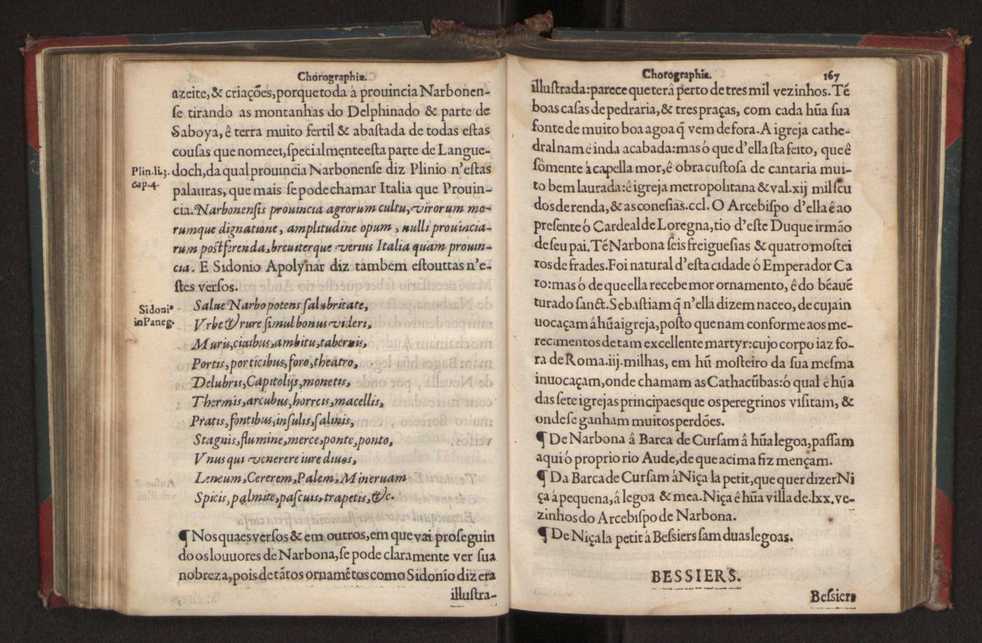 Chorographia.
azeite, & criações, porque toda à prouincia Narbonen-
se tirando as montanhas do Delphinado & parte de
Saboya, ê terra muito fertil & abastada de todas estas
cousas que nomeei, specialmente esta parte de Langue-
Plin. li. 3. cap. 4.
doch, da qual prouincia Narbonense diz Plinio n'estas
palauras, que mais se pode chamar Italia que Prouin-
cia. Narbonensis prouincia agrorum cultu, virorum mo-
rumque dignatione, amplitudine opum, nulli prouincia-
rum postferenda, breuiterque verius Italia quàm prouin-
cia. E Sidonio Apolynar diz tambem estouttas n'e-
stes versos.
Sidoni° in Paneg.
Salue Narbo potens salubritate,
Vrbe & rure simul bonus videri,
Muris, ciuibus, ambitu, tabernis,
Portis, porticibus, foro, theatro,
Delubris, Capitolijs, monetis,
Thermis, arcubus, horreis, macellis,
Pratis, fontibus, insulis, salinis,
Stagnis, flumine, merce, ponte, ponto,
Vnus qui venerere iure diuos,
Leneum, Cererem, Palem, Mineruam
Spicis, palmite, pascuis, trapetis, &c.
¶ Nos quaes versos & em outros, em que vai proseguin
do os louuores de Narbona, se pode claramente ver sua
nobreza, pois de tãtos ornamẽtos como Sidonio diz era
illustra-
Chorographia. 167
illustrada: parece que terá perto de tres mil vezinhos. Tẽ
boas casas de pedraria, & tres praças, com cada hũa sua
fonte de muito boa agoa q̃ vem de fora. A igreja cathe-
dral nam ê inda acabada: mas ó que d'ella sta feito, que ê
sômente à capella mor, ê obra custosa de cantaria mui-
to bem laurada: ê igreja metropolitana & val. xij mil scu
dos de renda, & as conesias. ccl. O Arcebispo d'ella ê ao
presente ó Cardeal de Loregna, tio d'este Duque irmão
de seu pai. Tẽ Narbona seis freiguesias & quatro mostei
ros de frades. Foi natural d'esta cidade ó Emperador Ca
ro: mas ó de que ella recebe mor ornamento, ê do bẽauẽ
turado sanct. Sebastiam q̃ n'ella dizem naceo, de cuja in
uocaçam â hũa igreja, posto que nam conforme aos me-
recimentos de tam excellente martyr: cujo corpo iaz fo-
ra de Roma. iij. milhas, em hũ mosteiro da sua mesma
inuocaçam, onde chamam as Cathacũbas: ó qual ê hũa
das sete igrejas principaes que os peregrinos visitam, &
onde se ganham muitos perdões.
¶ De Narbona â Barca de Cursam â hũa legoa, passam
aqui ó proprio rio Aude, de que acima fiz mençam.
¶ Da Barca de Cursam â Niça la petit, que quer dizer Ni
ça à pequena, â legoa & mea. Niça ê hũa villa de. lxx. ve-
zinhos do Arcebispo de Narbona.
¶ De Niça la petit à Bessiers sam duas legoas.
BESSIERS.
Bessiers